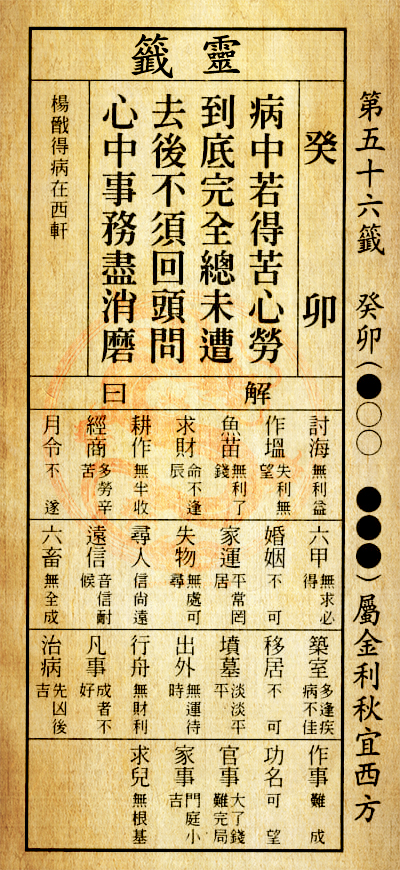 第五十六籤 癸卯(●○○ ●●●)屬金利秋宜西方
靈籤
癸卯
病中若得苦心勞
到底完全總未遭
去後不須回頭問
心中事務盡消磨
楊戩得病在西軒
解曰
討海 無利益
作塭 失利無望
魚苗 無利了錢
求財 命不逢辰
耕作 無半收
經商 多勞辛苦
月令 不遂
六甲 無求必得
婚姻 不可
家運 平常罔居
失物 無處可尋
尋人 信尚遠
遠信 音信耐候
六畜 無全成
築室 多逢疾病不佳
移居 不可
墳墓 淡淡平平
出外 無運待時
行舟 無財利
凡事 成者不好
治病 先凶後吉
作事 難成
功名 可望
官事 大了錢難完局
家事 門庭小吉
求兒 無根基